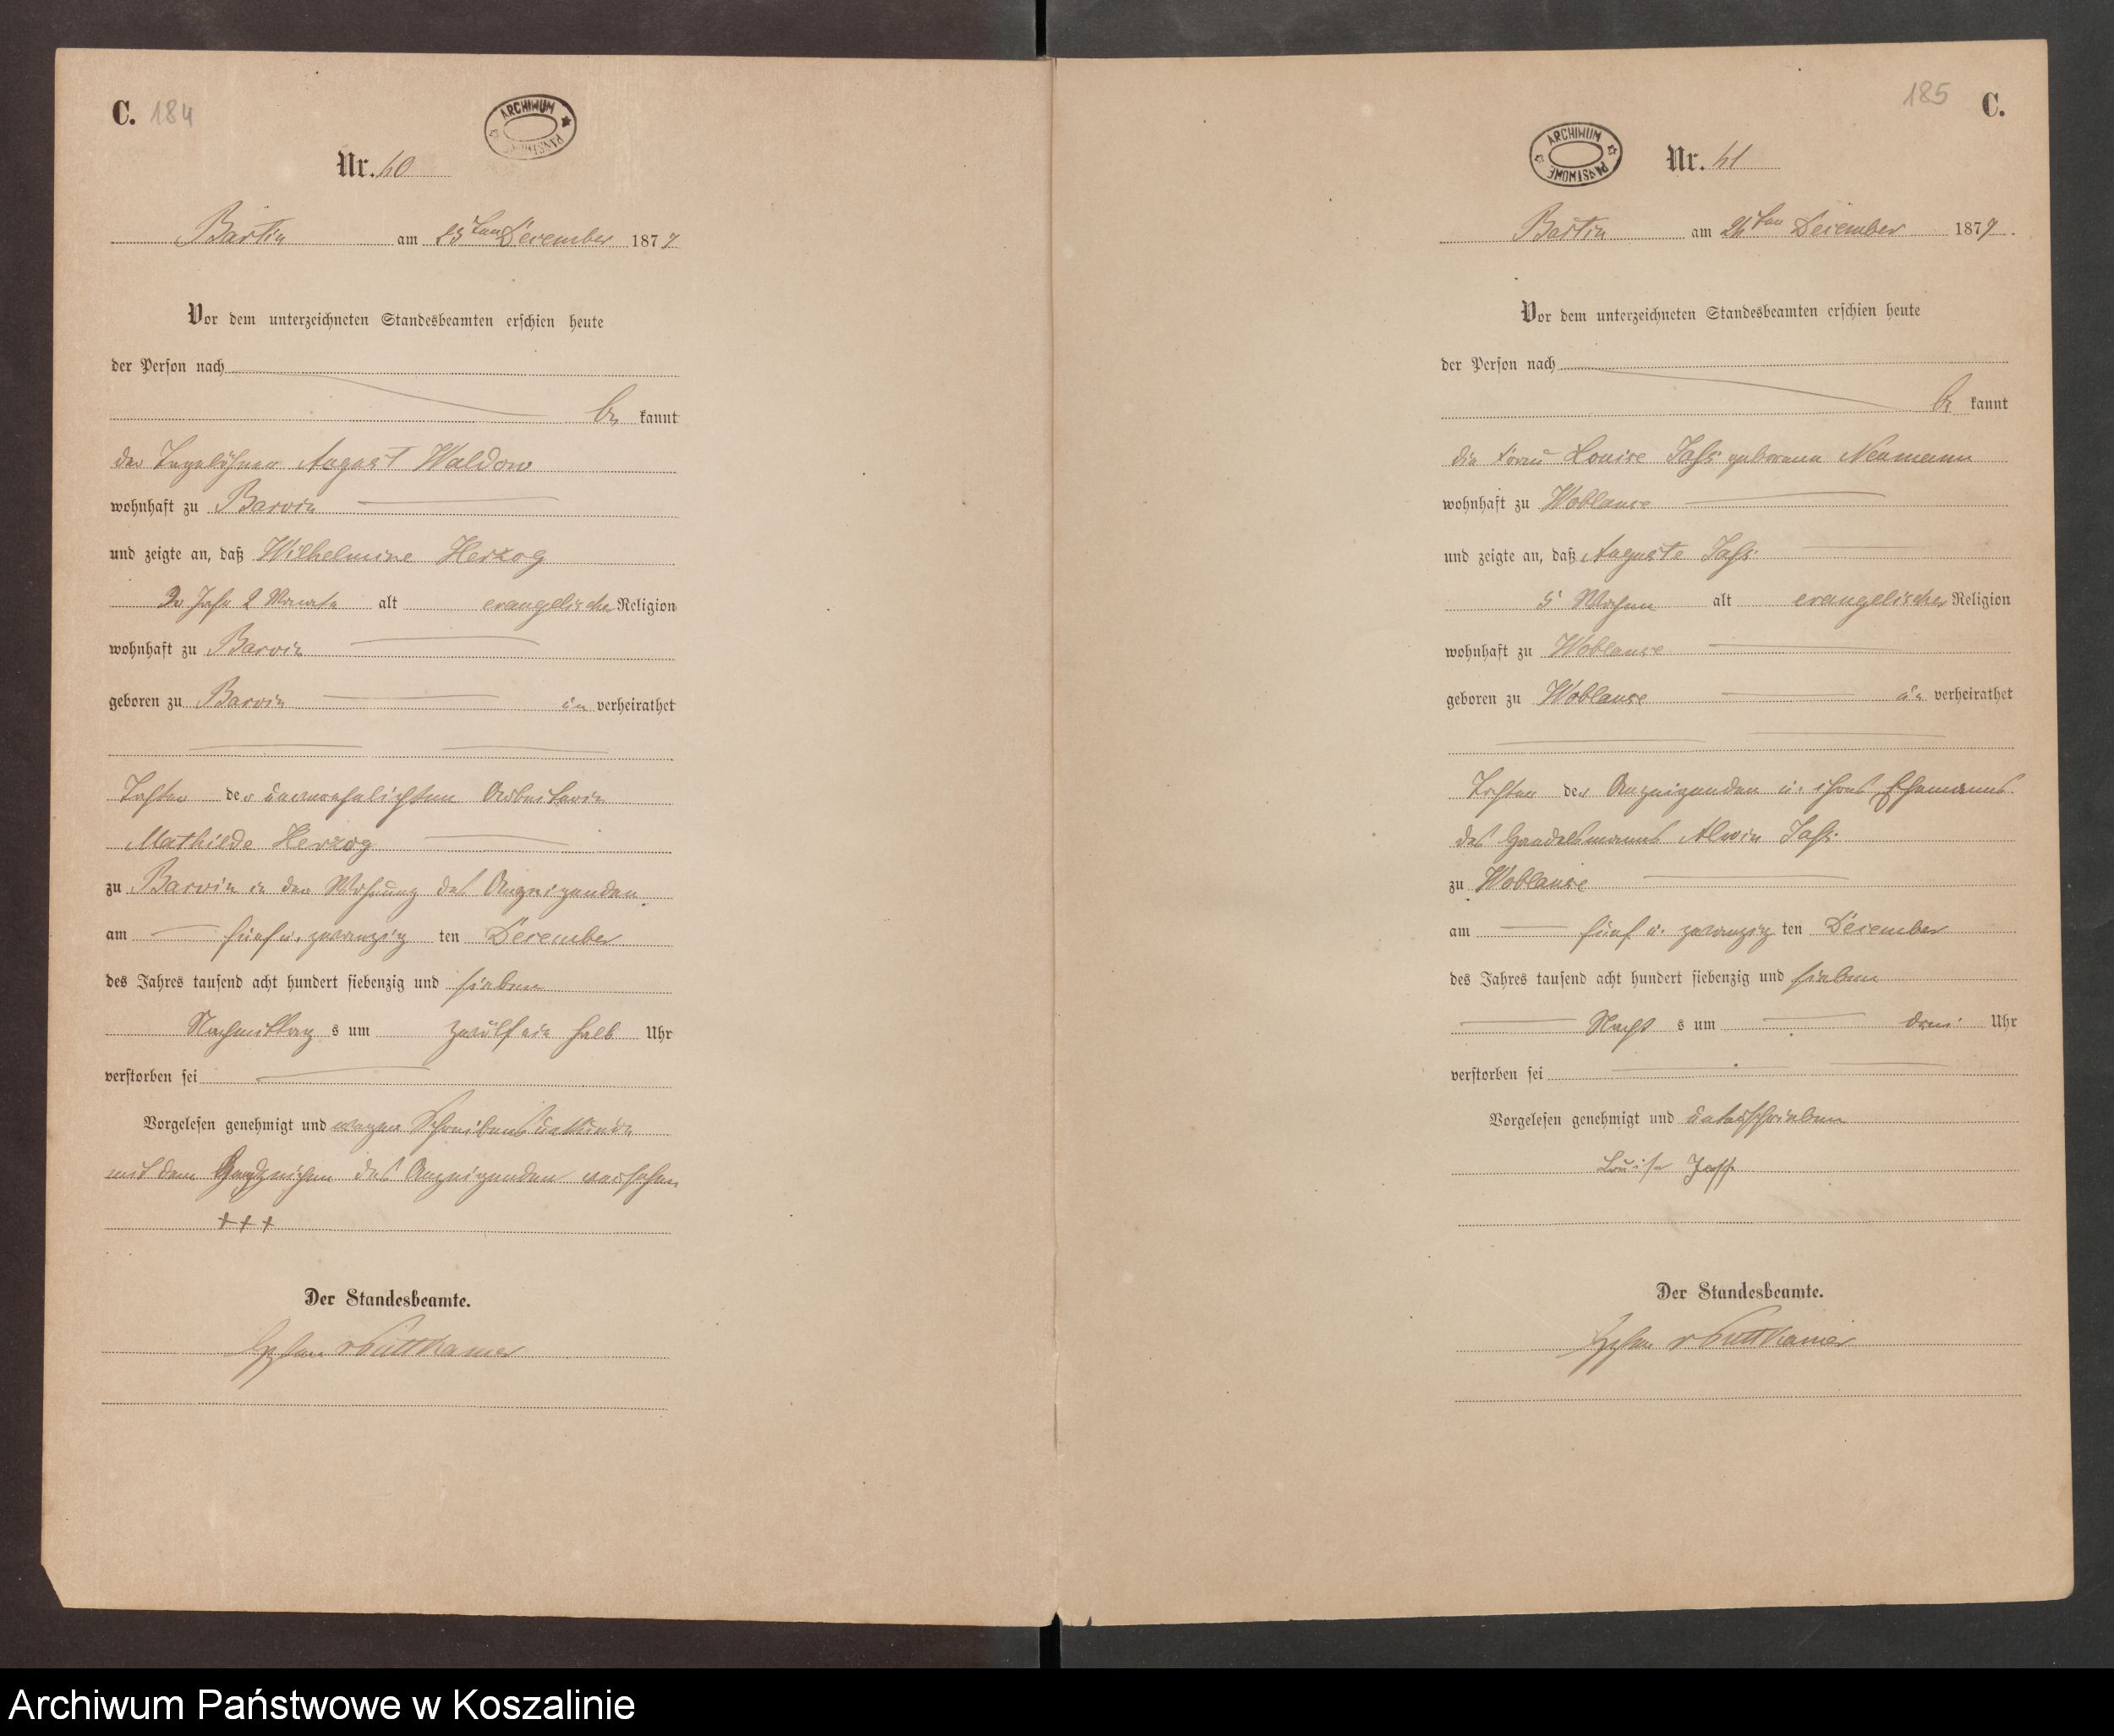 C. 184
ARCHIWUM PAŃSTWOWE
Nr. 40
Bartin am 25ten December 1877
Vor dem unterzeichneten Standesbeamten erschien heute
der Person nach
be kannt
der Tagelöhner August Waldow
wohnhaft zu Barvin
und zeigte an, daß Wilhelmine Herzog
Jahr 2 Monate alt evangelischer Religion
wohnhaft zu Barvin
geboren zu Barvin un verheirathet
Tochter der unverehelichten Arbeiterin
Mathilde Herzog
zu Barvin in der Wohnung des Anzeigenden
am fünf u. zwanzig ten December
des Jahres tausend acht hundert siebenzig und sieben
Nachmittag s um zwölf ein halb Uhr
verstorben sei
Vorgelesen genehmigt und wegen Schreibensunkunde
mit dem Handzeichen des Anzeigenden versehen
+++
Der Standesbeamte.
v Puttkamer
185 C.
ARCHIWUM PAŃSTWOWE
Nr. 41
Bartin am 26ten December 1877.
Vor dem unterzeichneten Standesbeamten erschien heute
der Person nach
be kannt
die Frau Louise Jaß geborene Neumann
wohnhaft zu Woblanse
und zeigte an, daß Auguste Jaß
5 Wochen alt evangelischer Religion
wohnhaft zu Woblanse
geboren zu Woblanse un verheirathet
Tochter der Anzeigenden u. ihres Ehemanns
des Handelsmanns Alwin Jaß
zu Woblanse
am fünf u. zwanzig ten December
des Jahres tausend acht hundert siebenzig und sieben
Nacht s um drei Uhr
verstorben sei
Vorgelesen genehmigt und unterschrieben
Louise Jaß
Der Standesbeamte.
v Puttkamer
Archiwum Państwowe w Koszalinie